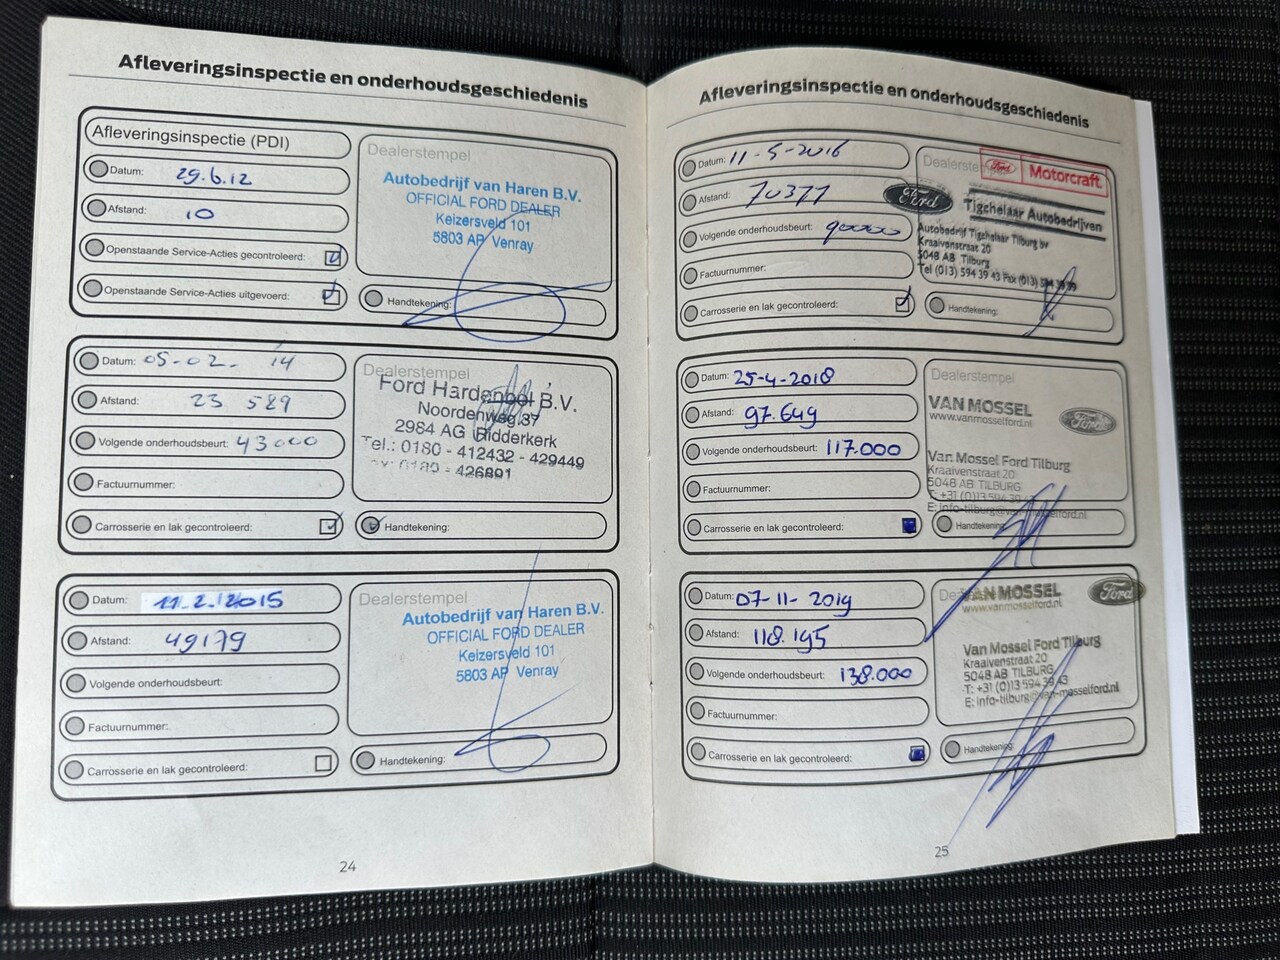 Afleveringsinspectie en onderhoudsgeschiedenis
Afleveringsinspectie (PDI)
Datum: 29.6.12
Afstand: 10
Openstaande Service-Acties gecontroleerd:
Openstaande Service-Acties uitgevoerd:
Dealerstempel
Autobedrijf van Haren B.V.
OFFICIAL FORD DEALER
Keizersveld 101
5803 AP Venray
Handtekening:
Datum: 05-02- 14
Afstand: 23 589
Volgende onderhoudsbeurt: 43000
Factuurnummer:
Carrosserie en lak gecontroleerd:
Dealerstempel
Ford Hardenbol B.V.
Noordenweg 37
2984 AG Ridderkerk
Tel.: 0180 - 412432 - 429449
0180 - 426891
Handtekening:
Datum: 11.2.2015
Afstand: 49179
Volgende onderhoudsbeurt:
Factuurnummer:
Carrosserie en lak gecontroleerd:
Dealerstempel
Autobedrijf van Haren B.V.
OFFICIAL FORD DEALER
Keizersveld 101
5803 AP Venray
Handtekening:
24
Afleveringsinspectie en onderhoudsgeschiedenis
Datum: 11-5-2016
Afstand: 70377
Volgende onderhoudsbeurt: 90000
Factuurnummer:
Carrosserie en lak gecontroleerd:
Dealerstempel
Ford Motorcraft
Ford
Tigchelaar Autobedrijven
Autobedrijf Tigchelaar Tilburg bv
Kraaivenstraat 20
5048 AB Tilburg
Tel (013) 594 39 43 Fax (013) 594 39 99
Handtekening:
Datum: 25-4-2018
Afstand: 97.649
Volgende onderhoudsbeurt: 117.000
Factuurnummer:
Carrosserie en lak gecontroleerd:
Dealerstempel
VAN MOSSEL
www.vanmosselford.nl
Ford
Van Mossel Ford Tilburg
Kraaivenstraat 20
5048 AB TILBURG
T: +31 (0)13 594 39 43
E: info-tilburg@vanmosselford.nl
Handtekening:
Datum: 07-11-2019
Afstand: 118.195
Volgende onderhoudsbeurt: 138.000
Factuurnummer:
Carrosserie en lak gecontroleerd:
VAN MOSSEL
www.vanmosselford.nl
Ford
Van Mossel Ford Tilburg
Kraaivenstraat 20
5048 AB TILBURG
T: +31 (0)13 594 39 43
E: info-tilburg@van-mosselford.nl
Handtekening:
25